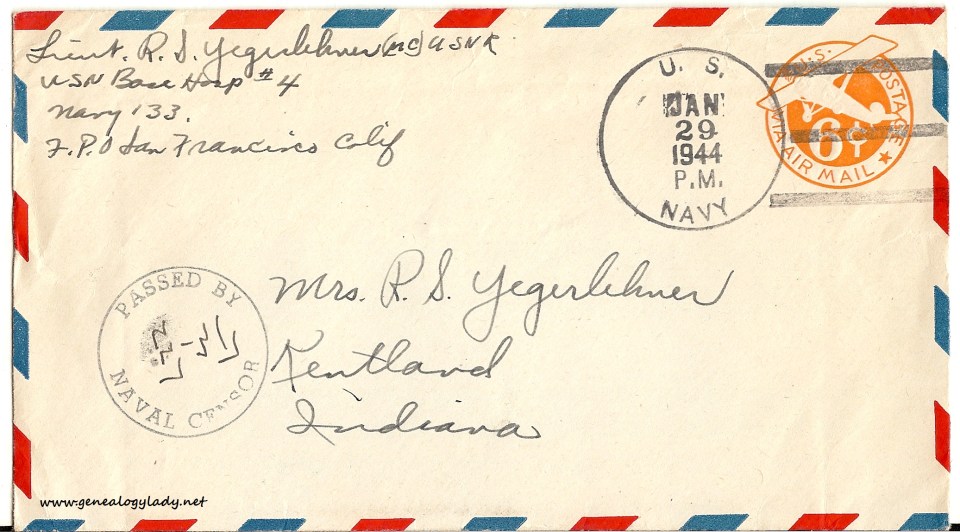 Lieut. R. S. Yegerlehner (MC) USNR
USN Base Hosp #4
Navy 133.
F.P.O San Francisco Calif
U. S.
JAN
29
1944
P.M.
NAVY
U.S. POSTAGE
6¢
VIA AIR MAIL
PASSED BY
NAVAL CENSOR
Mrs. R. S. Yegerlehner
Kentland
Indiana
www.genealogylady.net